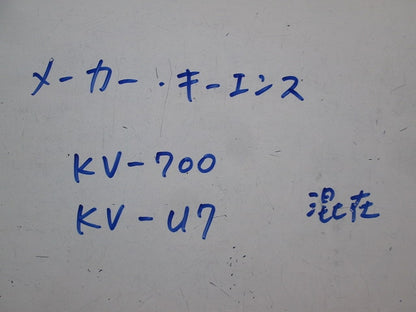 メーカー・キーエンス
KV-700
KV-U7 混在